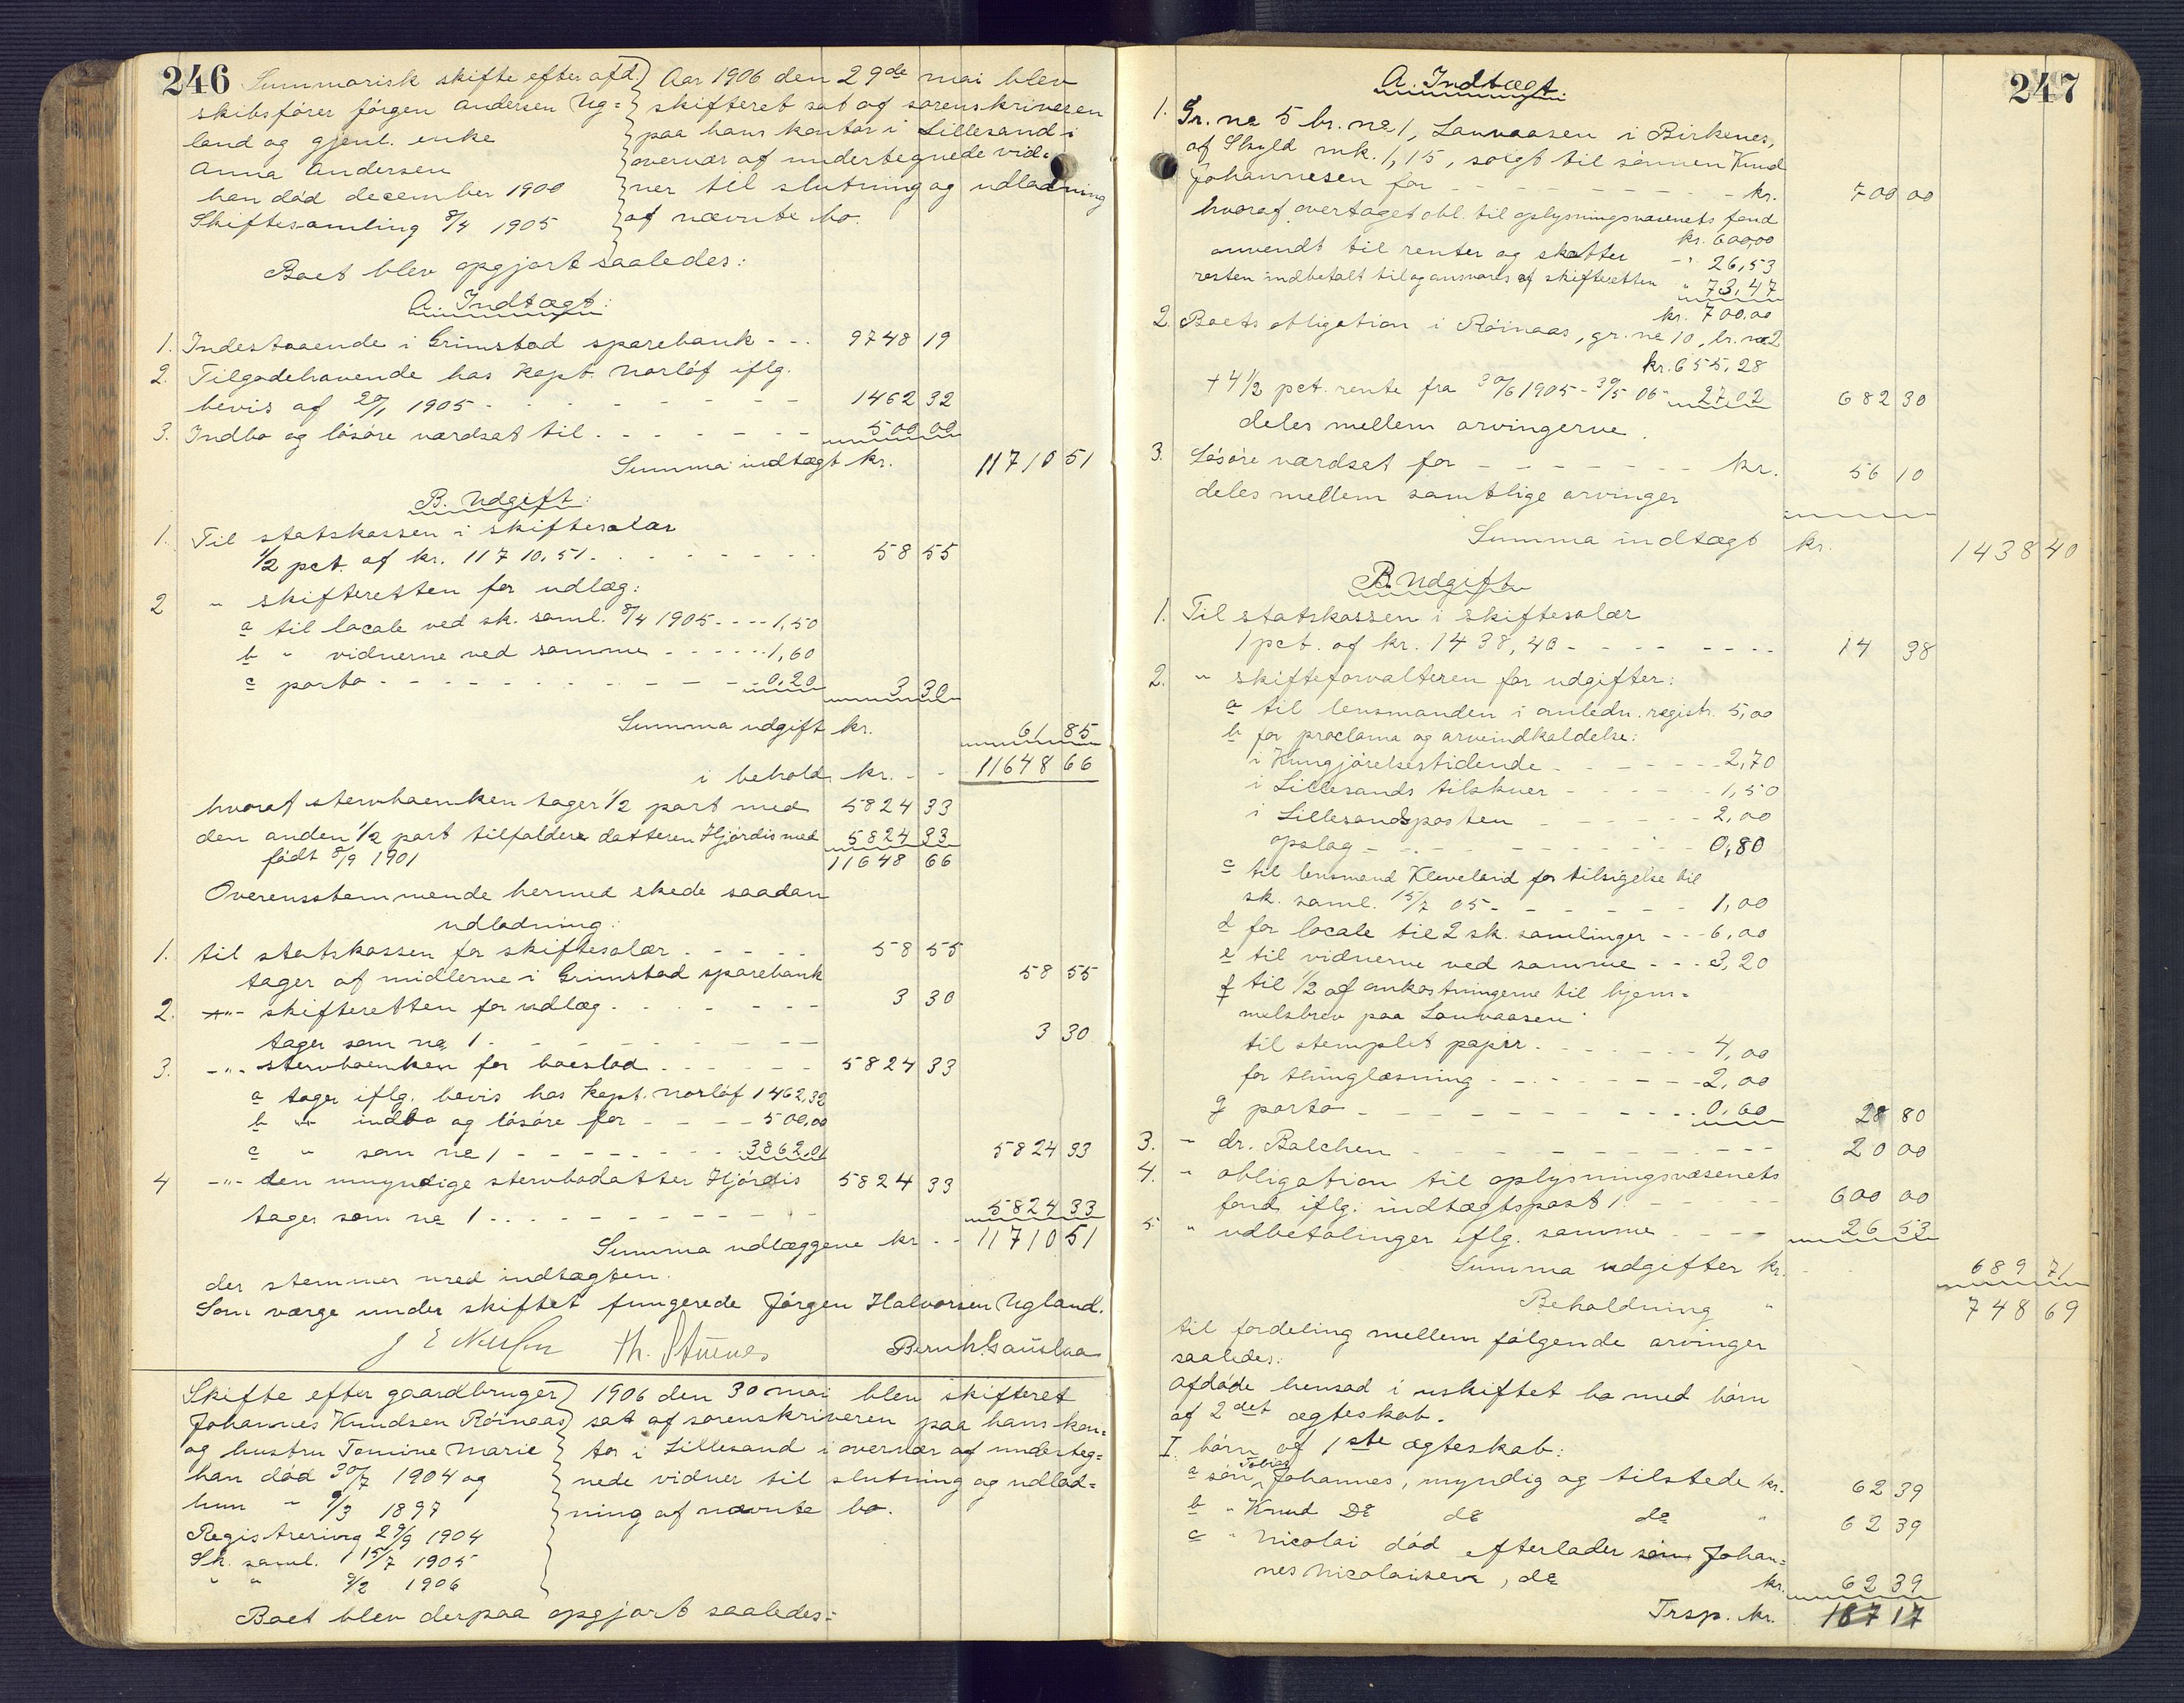 246
Summarisk skifte efter afd.
skibsfører Jörgen Andersen Ug=
land og gjenl. enke
Anna Andersen
han död december 1900
Skiftesamling 8/4 1905
Aar 1906 den 29de mai blev
skifteret sat af sorenskriveren
paa hans kontor i Lillesand i
overvær af undertegnede vid=
ner til slutning og udlodning
af nævnte bo.
Boet blev opgjort saaledes:
A. Indtægt:
1. Indestaaende i Grimstad sparebank - - . 9748 19
2. Tilgodehavende hos Kapt. Norlöf iflg.
bevis af 20/1 1905 - - - - - - - 1462 32
3. Indbo og lösöre værdsat til - - - - - 500 00
Summa indtægt kr. 11710 51
B. Udgift:
1. Til statskassen i skiftesalær
1/2 pct. af kr. 11710,51 - - - - - - 58 55
2 " skifteretten for udlæg:
a til locale ved sk. saml. 8/4 1905 - - - - 1,50
b " vidnerne ved samme - - - - - 1,60
c porto - - - - - - - - - - 0,20 3 30
Summa udgift kr. 61 85
i behold kr. - - 11648 66
hvoraf stervboenken tager 1/2 part med 5824 33
den anden 1/2 part tilfalder datteren Hjördis med 5824 33
födt 8/9 1901 11648 66
Overensstemmende hermed skede saadan
udlodning:
1. til statskassen for skiftesalær - - - - 58 55
tager af midlerne i Grimstad sparebank 58 55
2. -"- skifteretten for udlæg - - - - - - 3 30
tager som no 1 - - - - - - - - 3 30
3. -"- stervboenken for boeslod - - - - - 5824 33
a tager iflg. bevis hos Kapt. Norlöf 1462,32
b " indbo og lösöre for - - - - 500,00
c " som no 1 - - - - - - - 3862,01 5824 33
4 -"- den umyndige stervbodatter Hjördis 5824 33
tager som no 1 - - - - - - - - - 5824 33
Summa udlæggene kr - - 11710 51
der stemmer med indtægten.
Som værge under skiftet fungerede Jörgen Halvorsen Ugland.
Th. Stuenes Bernh. Gauslaa
Skifte efter gaardbruger
Johannes Knudsen Röinaas
og hustru Tomine Marie
han död 30/7 1904 og
hun " 9/3 1897
Registrering 29/9 1904
Sk. saml. 15/7 1905
" " 9/2 1906
1906 den 30 mai blev skifteret
sat af sorenskriveren paa hans kon=
tor i Lillesand i overvær af underteg=
nede vidner til slutning og udlod=
ning af nævnte bo.
Boet blev derpaa opgjort saaledes:
247
A. Indtægt.
1. Gr. no 5 br. no 1, Lauvaasen i Birkenes,
af Skyld mk. 1,15, solgt til sönnen Knud
Johannesen for - - - - - - - - kr. 700 00
hvoraf overtaget obl. til oplysningsvæsenets fond
kr. 600,00
anvendt til renter og skatter - " 26,53
resten indbetalt til og ansvares af skifteretten " 73,47
kr. 700,00
2. Boets obligation i Röinaas, gr. no 10, br. no 2
kr. 655,28
+ 4 1/2 pct. rente fra 30/6 1905 - 30/5 06 - 27,02 682 30
deles mellem arvingerne.
3. Lösöre værdsat for - - - - - - - kr. 56 10
deles mellem samtlige arvinger
Summa indtægt kr. 1438 40
B. Udgift
1. Til statskassen i skiftesalær
1 pct. af kr. 1438,40 - - - - - - - - 14 38
2. " skifteforvalteren for udgifter:
a til lensmanden i anledn. registr. 5,00
b for proclama og arveindkaldelse:
i Kungjörelsestidende - - - - - - 2,70
i Lillesands tilskuer - - - - - 1,50
i Lillesandsposten - - - - - - 2,00
opslag - - - - - - - - - 0,80
c til lensmand Kleveland for tilsigelse til
sk. saml. 15/7 05 - - - - - - 1,00
d for locale til 2 sk. samlinger - - - 6,00
e til vidnerne ved samme - - - 3,20
f til 1/2 af omkostningerne til hjem=
melsbrev paa Lauvaasen:
til stemplet papir - - - - - - 4,00
for thinglæsning - - - - - - - 2,00
g porto - - - - - - - - - 0,60 28 80
3. " dr. Balchen - - - - - - - - - - 20 00
4. " obligation til oplysningsvæsenets
fond iflg. indtægtspost 1. - - - - 600 00
5. " udbetalinger iflg. samme - - - - 26 53
Summa udgifter kr. 689 71
Beholdning " 748 69
til fordeling mellem fölgende arvinger
saaledes:
Afdöde hensad i uskiftet bo med börn
af 2det ægteskab.
I. börn af 1ste ægteskab:
a sön Tobias Johannes, myndig og tilstede kr. 62 39
b " Knud Do do do " 62 39
c " Nicolai död efterlader sön Johan=
nes Nicolaisen, do kr. 62 39
Trsp. kr. 187 17